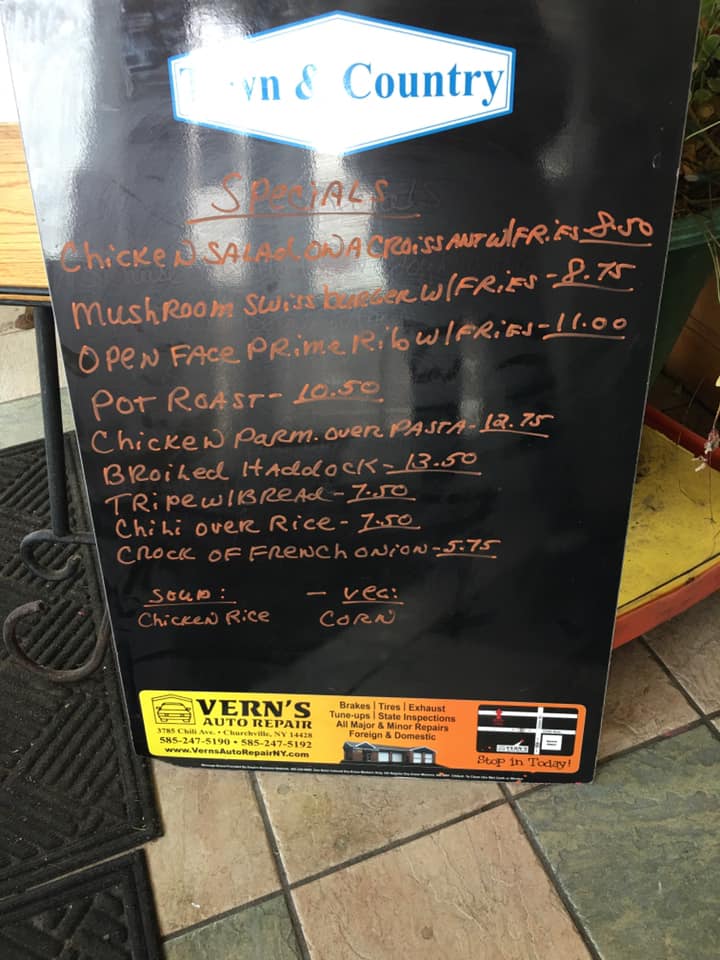 & Country
SPECIALS
Chicken SALAd ON A CROISSANT W/FRIES - 8.50
MushRoom Swiss burger W/FRIES - 8.75
OPEN FACE PRIME Rib W/FRIES - 11.00
POT ROAST - 10.50
Chicken PARM. OVER PASTA - 12.75
BROILED HADDOCK - 13.50
TRIPE W/BREAD - 7.50
Chili OVER Rice - 7.50
CROCK OF FRENCH ONION - 5.75
SOUP: - VEG:
Chicken Rice CORN
VERN'S
AUTO REPAIR
3785 Chili Ave. • Churchville, NY 14428
585-247-5190 • 585-247-5192
www.VernsAutoRepairNY.com
Brakes | Tires | Exhaust
Tune-ups | State Inspections
All Major & Minor Repairs
Foreign & Domestic
VERN'S
Stop in Today!